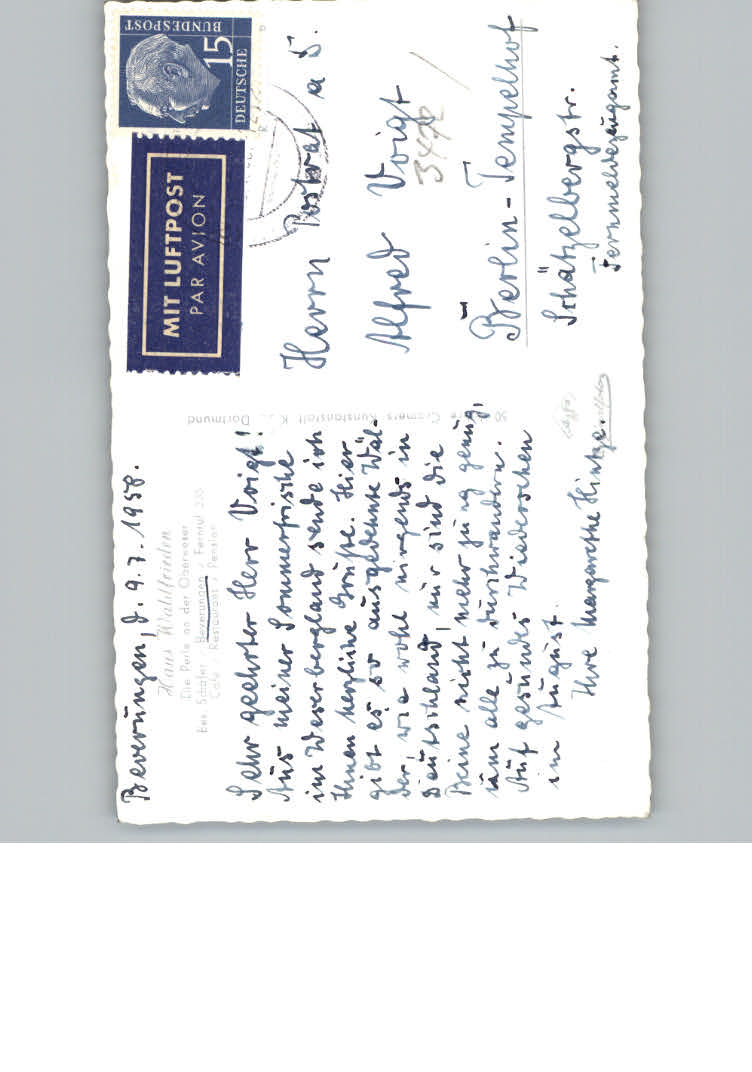 Beverungen, d. 9.7.1958.
Haus Waldfrieden
Die Perle an der Oberweser
Bes. Schäfer / Beverungen / Fernruf 235
Café / Restaurant / Pension
Sehr geehrter Herr Voigt!
Aus meiner Sommerfrische
im Weserbergland sende ich
Ihnen herzliche Grüße. Hier
gibt es so ausgedehnte Wäl-
der wie wohl nirgends in
Deutschland, nur sind die
Beine nicht mehr jung genug,
um alle zu durchwandern.
Auf gesundes Wiedersehen
im August.
Ihre Margarethe Hintze.
Cramers Kunstanstalt KG, Dortmund
MIT LUFTPOST
PAR AVION
DEUTSCHE
BUNDESPOST
15
Herrn Postrat a D.
Alfred Voigt
Berlin-Tempelhof
Schätzelbergstr.
Fernmeldezeugamt.